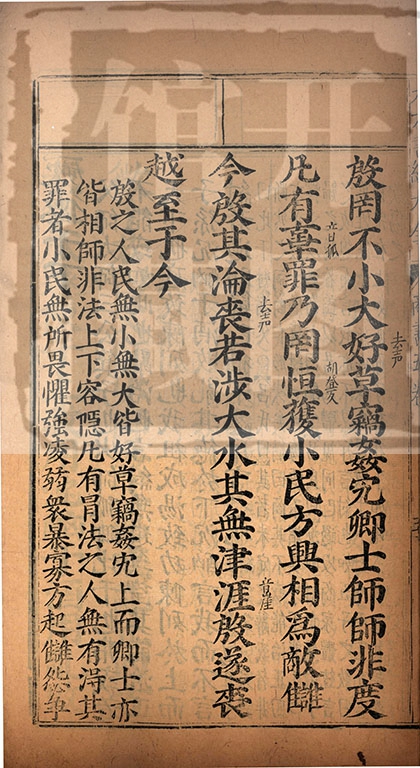 殷罔不小大好草竊姦宄卿士師師非度
去声
凡有辜罪乃罔恒獲小民方興相爲敵讎
音孤
胡登反
今殷其淪喪若涉大水其無津涯殷遂喪
去声
音崖
越至于今
殷之人民無小無大皆好草竊姦宄上而卿士亦
皆相師非法上下容隱凡有冐法之人無有得其
罪者小民無所畏懼強凌弱衆暴寡方起讎怨爭